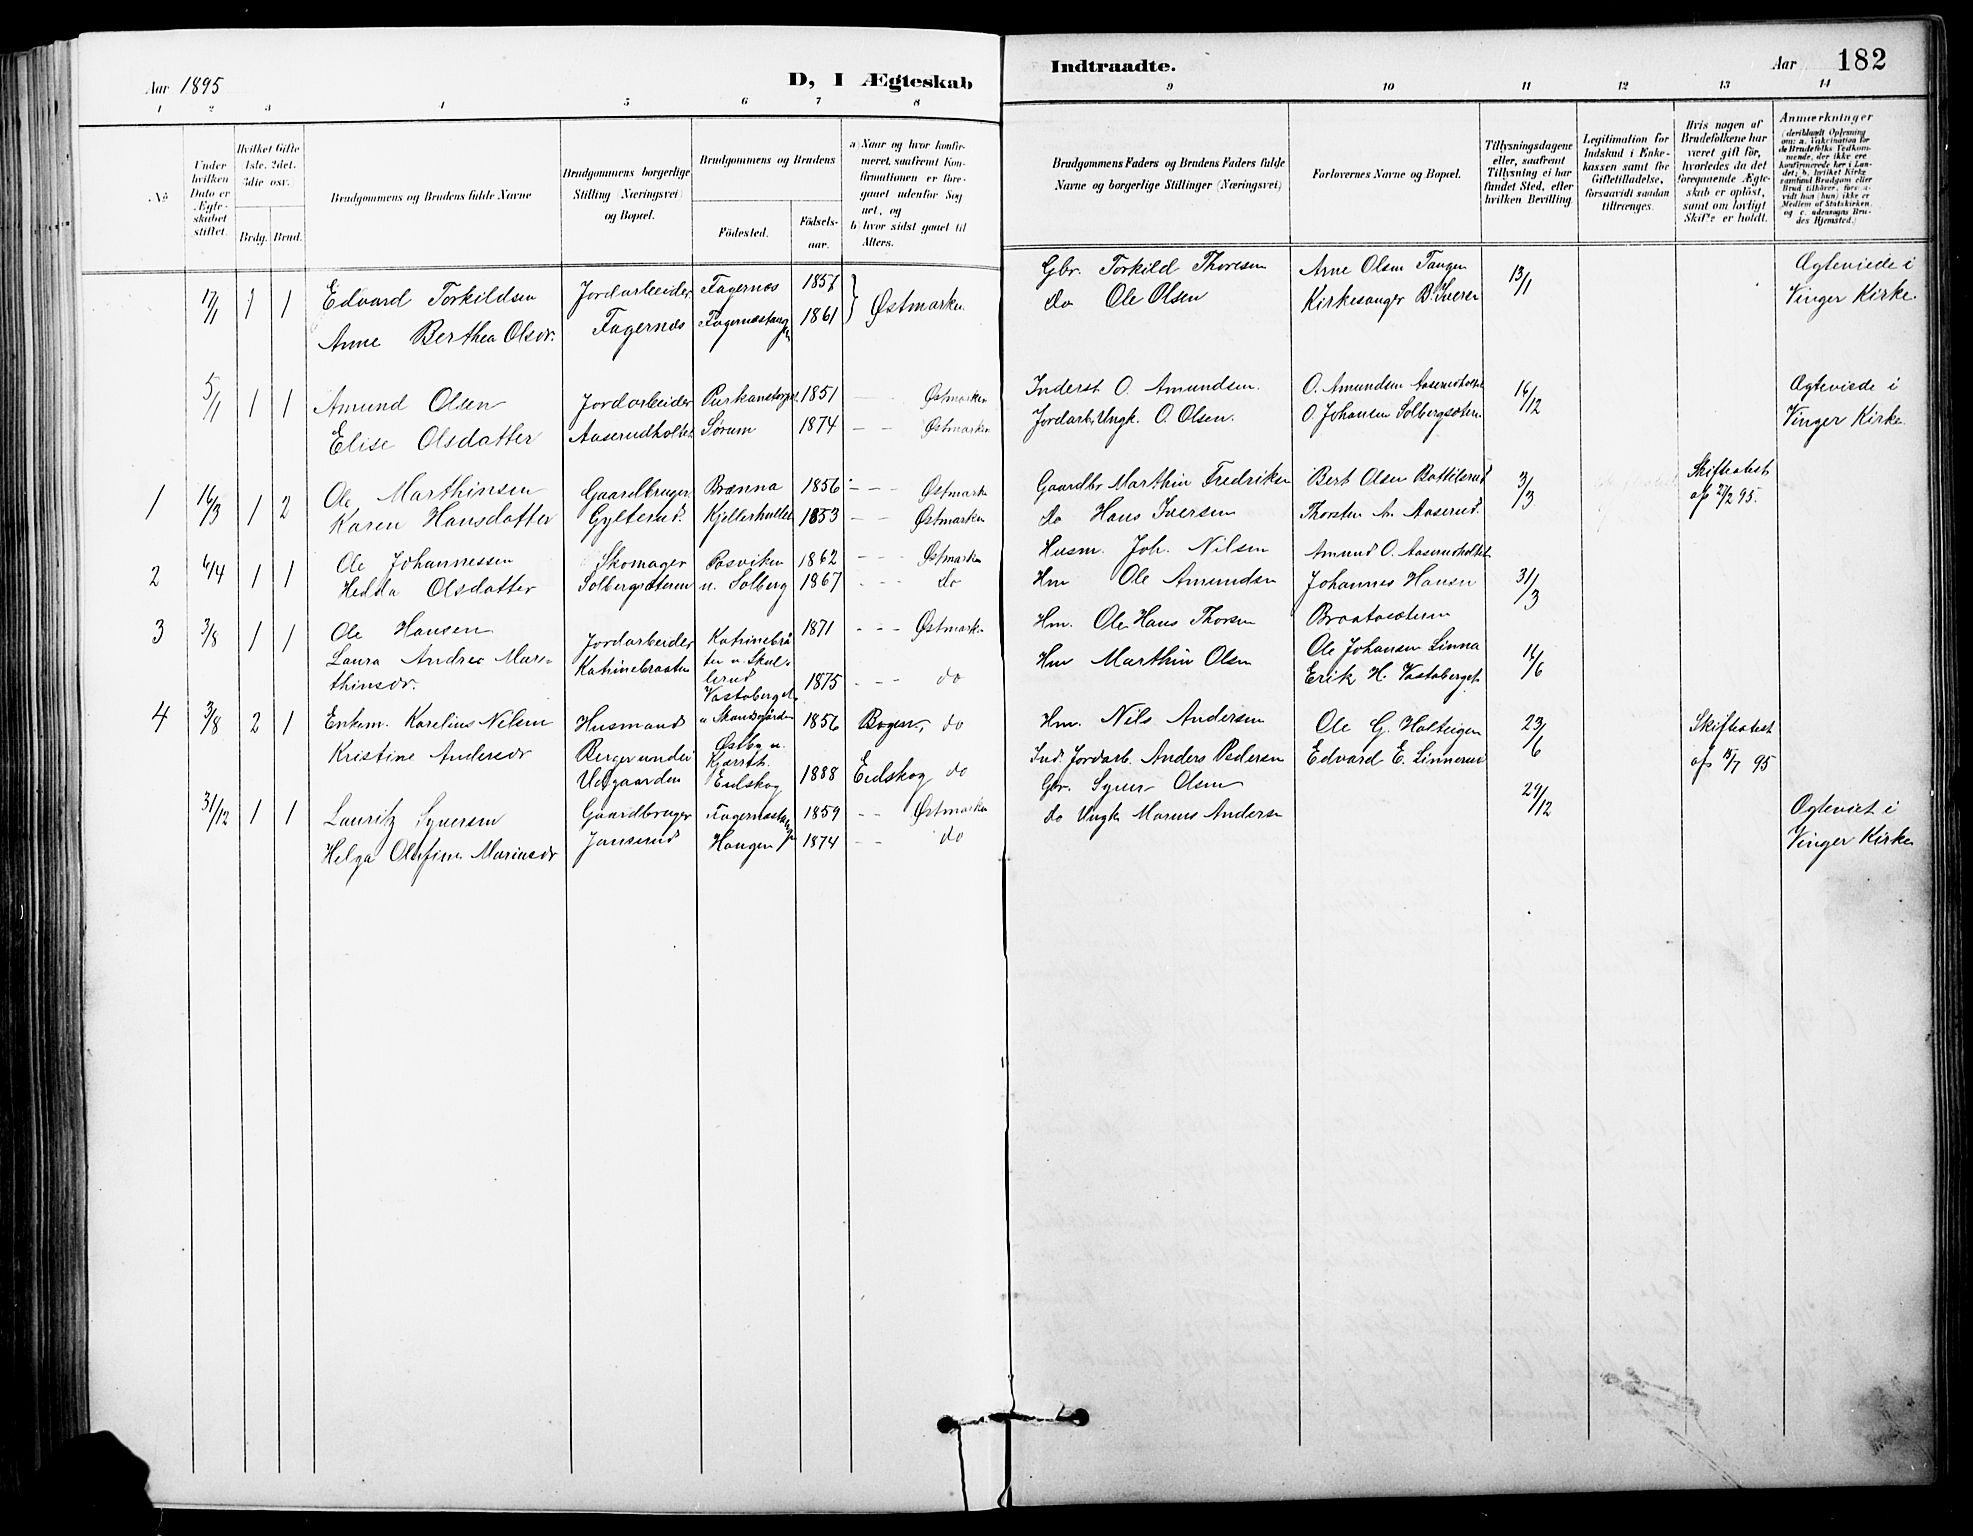 Aar 1895
D, I Ægteskab
Indtraadte.
Aar 182
1 2 3 4 5 6 7 8 9 10 11 12 13 14
No.
Under hvilken Dato er Ægteskabet stiftet.
Hvilket Gifte 1ste. 2det. 3die osv.
Brdg. Brud.
Brudgommens og Brudens fulde Navne
Brudgommens borgerlige Stilling (Næringsvei) og Bopæl.
Brudgommens og Brudens
Fødested.
Fødselsaar.
a) Naar og hvor konfirmeret, saafremt Konfirmationen er foregaaet udenfor Sognet, og
b) hvor sidst gaaet til Alters.
Brudgommens Faders og Brudens Faders fulde Navne og borgerlige Stillinger (Næringsvei)
Forlovernes Navne og Bopæl.
Tillysningsdagene eller, saafremt Tillysning ei har fundet Sted, efter hvilken Bevilling.
Legitimation for Indskud i Enkekassen samt for Giftetilladelse, forsaavidt saadan tiltrænges.
Hvis nogen af Brudefolkene har været gift før, hvorledes da det foregaaende Ægteskab er opløst, samt om lovligt Skifte er holdt.
Anmærkninger
(deriblandt Oplysning om: a. Vakcination for de Brudefolks Vedkommende, der ikke ere konfirmerede her i Landet; b. hvilket Kirkesamfund Brudgom eller Brud tilhører, forsaavidt han (hun) ikke er Medlem af Statskirken, og c. udensogns Brudes Hjemsted.)
17/1 1 1 Edvard Torkildsen Jordarbeider Fagernæs 1857 Østmarken Gbr. Torkild Thoresen Arne Olsen Tangen 13/1 Ægteviede i
Anne Berthea Olsdr. Fagernæs 1861 do Ole Olsen Kirkesanger B. Iversen Vinger Kirke.
5/1 1 1 Amund Olsen Jordarbeider 1851 Østmarken Inderst O. Amundsen. O. Amundsen Aaserudholtet 16/12 Ægteviede i
Elise Olsdatter Aaserudholtet Sørum 1874 Østmarken Jordarb. Ungk. O. Olsen. O. Johansen Solbergsæteren Vinger Kirke.
1 16/3 1 2 Ole Marthinsen Gaardbruger Brænna 1856 Østmarken Gaardbr Marthin Fredriksen Bert Olsen Bottilsrud 3/3 Skifteatest
Karen Hansdatter Gylterud. Kjellerholtet 1853 Østmarken do Hans Iversen Thorsten A. Aaserud. af 27/2 95.
2 6/4 1 1 Ole Johannessen Skomager Posviken 1862 Østmarken Husm. Joh. Nilsen Amund O. Aaserudholtet
Hedda Olsdatter Solbergsæteren u. Solberg 1867 do Hm Ole Amundsen Johannes Hansen 31/3
Braatasæteren
3 3/8 1 1 Ole Hansen Jordarbeider Katrinebråten u. Skullerud 1871 Østmarken Hm. Ole Hans Thorsen Ole Johansen Linna 16/6
Laura Andrea Marthinsdr. Katrinebraaten Vastaberget 1875 do Hm Marthin Olsen Erik H. Vastaberget
4 3/8 2 1 Enkem. Karelius Nilsen Husmand 1856 Bogen, do Hm. Nils Andersen Ole G. Holteigen 23/6 Skifteatest
Kristine Andersdr Berger under Østby u. Kjærsth. Eidskog 1888 Eidskog do Ind. Jordarb. Anders Pedersen Edvard E. Linnerud af 95
31/12 1 1 Lauritz Syversen Gaardbruger 1859 Østmarken Gbr. Syver Olsen 29/12 Ægteviet i
Helga Olufine Mariusdr Jonsrud Haugen 1874 do do Ungk Marius Andersen Vinger Kirke